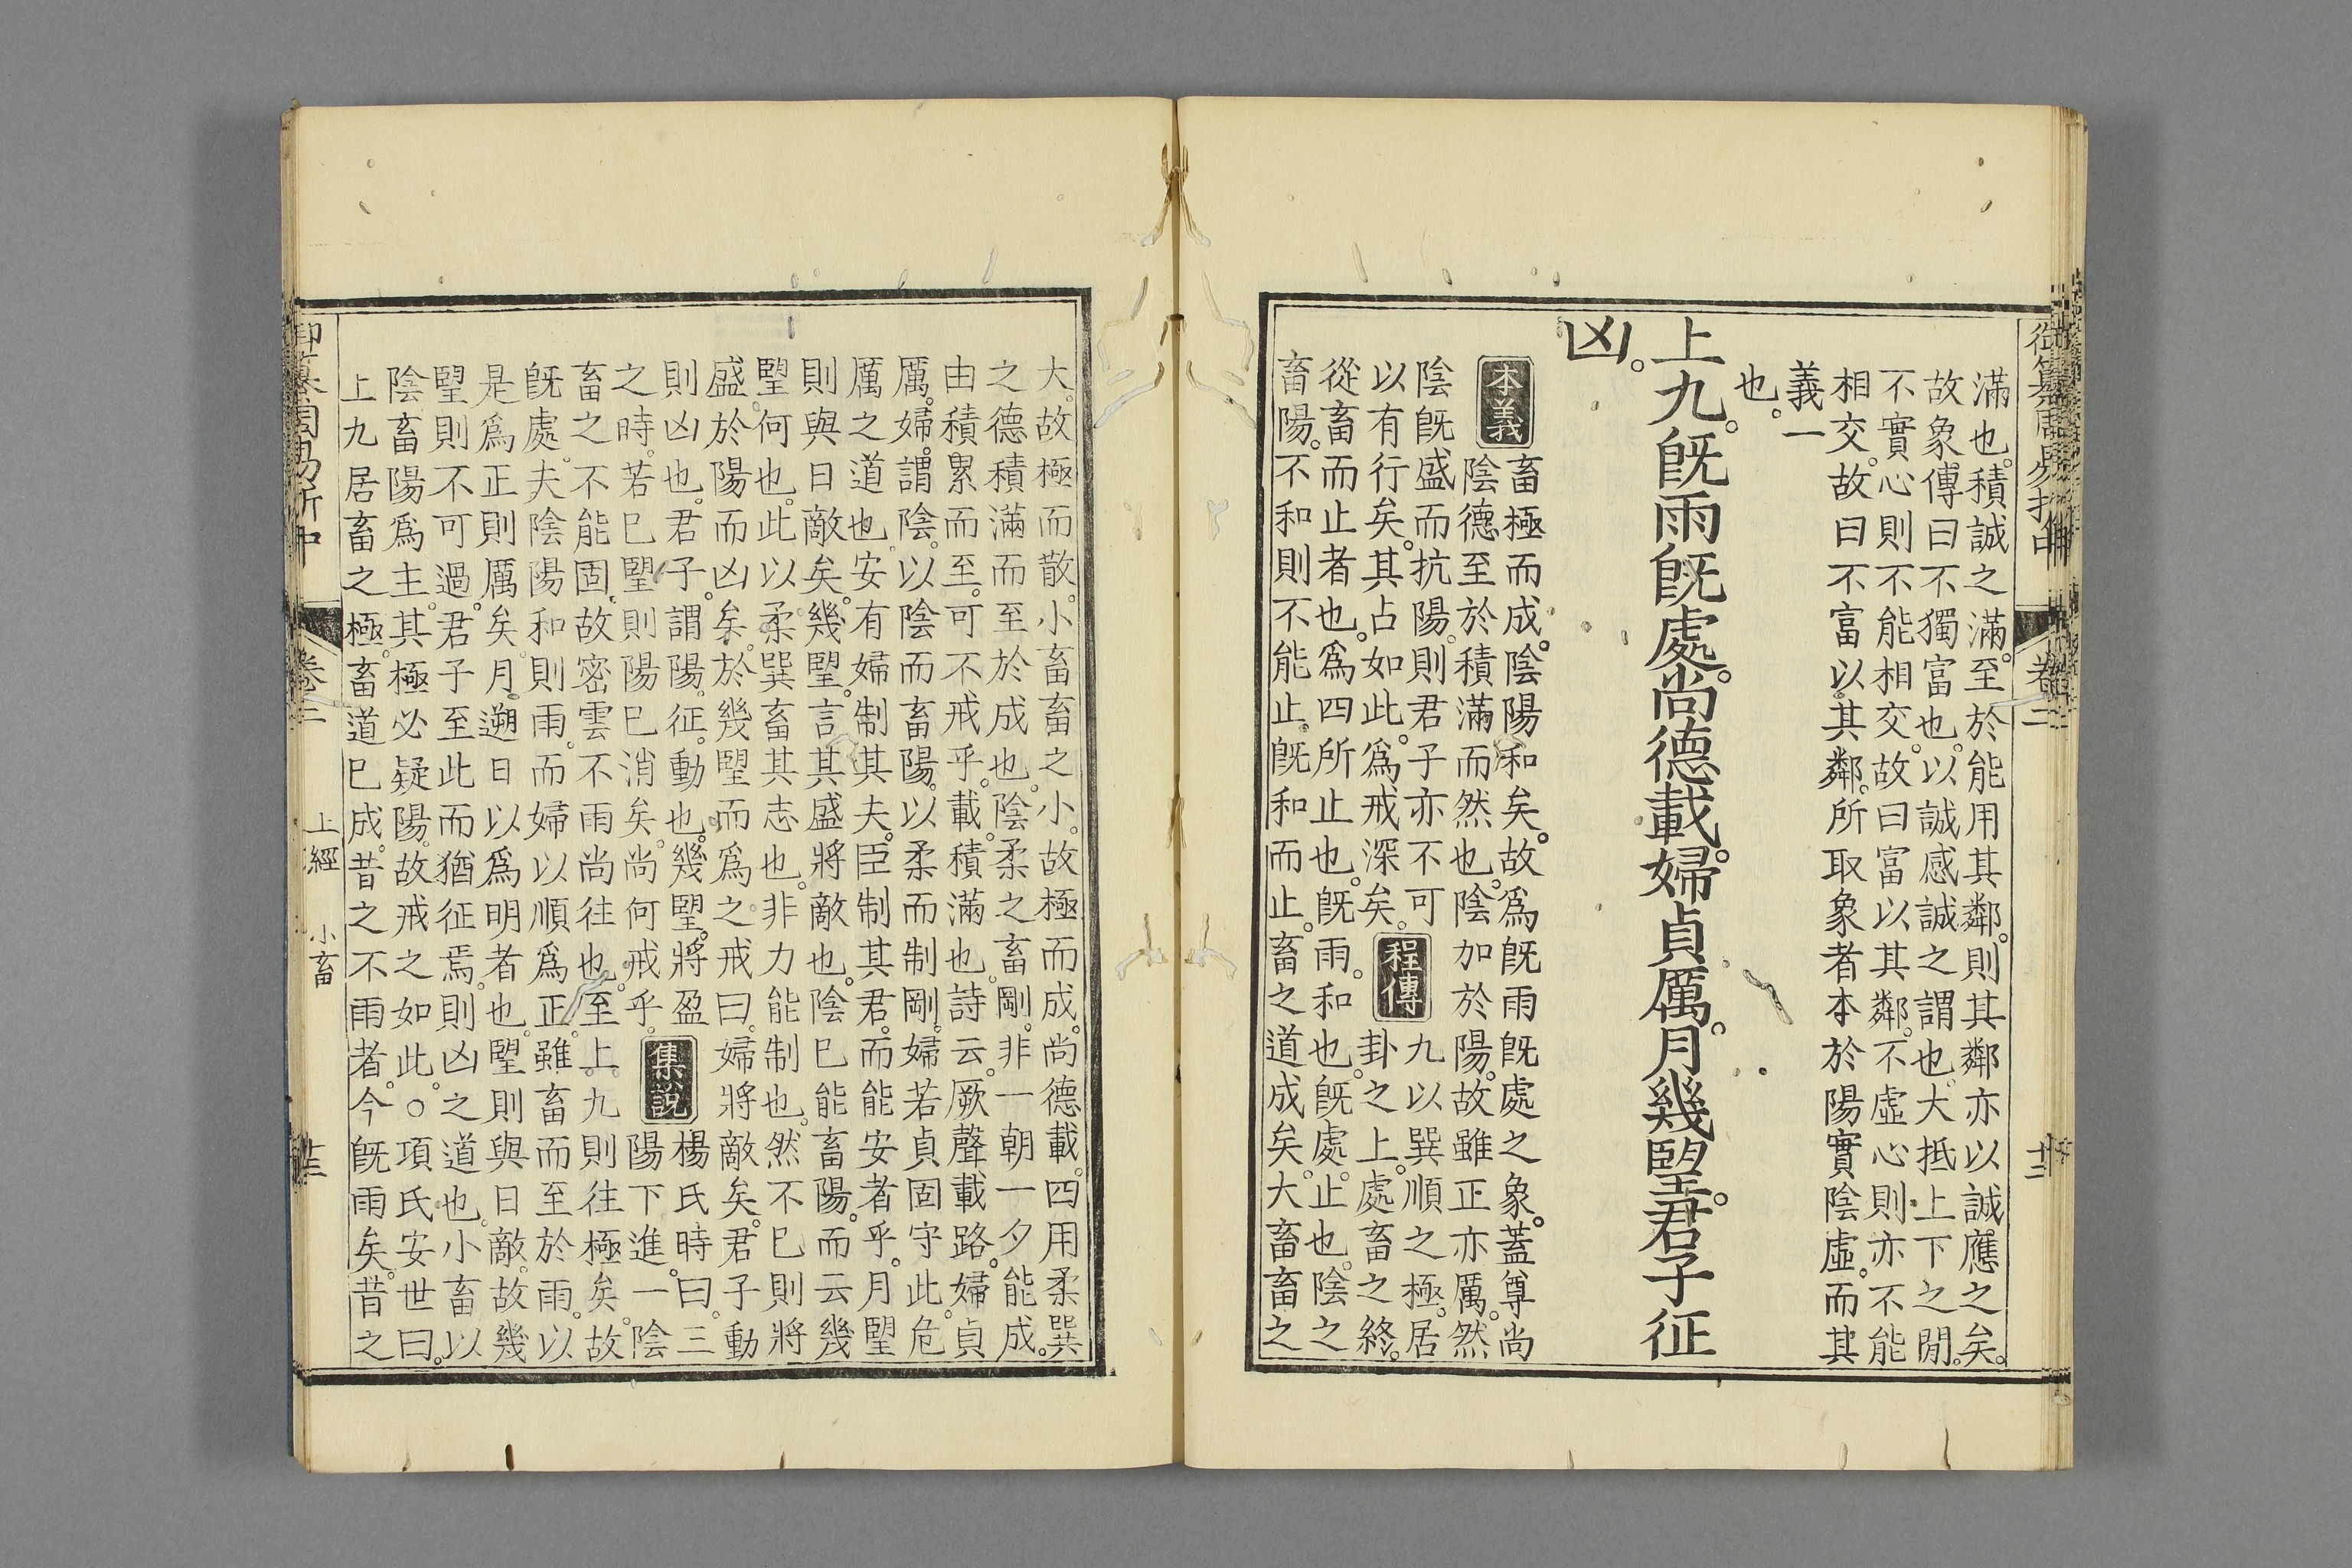 御纂周易折中
卷二
十二
滿也。積誠之滿。至於能用其鄰。則其鄰亦以誠應之矣。
故象傳曰不獨富也。以誠感誠之謂也。大抵上下之閒。
不實心則不能相交。故曰富以其鄰。不虛心則亦不能
相交。故曰不富以其鄰。所取象者本於陽實陰虛。而其
義一
也。
上九。旣雨旣處。尚德載。婦貞厲。月幾朢。君子征
凶。
本義
畜極而成。陰陽和矣。故爲旣雨旣處之象。蓋尊尚
陰德至於積滿而然也。陰加於陽。故雖正亦厲。然
陰旣盛而抗陽。則君子亦不可
以有行矣。其占如此。爲戒深矣。
程傳
九以巽順之極。居
卦之上。處畜之終。
從畜而止者也。爲四所止也。旣雨。和也。旣處。止也。陰之
畜陽。不和則不能止。旣和而止。畜之道成矣。大畜畜之
大。故極而散。小畜畜之小。故極而成。尚德載。四用柔巽
之德積滿而至於成也。陰柔之畜剛。非一朝一夕能成。
由積累而至。可不戒乎。載。積滿也。詩云。厥聲載路。婦貞
厲。婦。謂陰。以陰而畜陽。以柔而制剛。婦若貞固守此。危
厲之道也。安有婦制其夫。臣制其君。而能安者乎。月朢
則與日敵矣。幾朢。言其盛將敵也。陰已能畜陽。而云幾
朢。何也。此以柔巽畜其志也。非力能制也。然不已則將
盛於陽而凶矣。於幾朢而爲之戒曰。婦將敵矣。君子動
則凶也。君子。謂陽。征。動也。幾朢。將盈
之時。若已朢則陽已消矣。尚何戒乎。
集說
楊氏時曰。三
陽下進。一陰
畜之不能固。故密雲不雨尚往也。至上九則往極矣。故
旣處。夫陰陽和則雨。而婦以順爲正。雖畜而至於雨。以
是爲正則厲矣。月遡日以爲明者也。朢則與日敵。故幾
朢則不可過。君子至此而猶征焉。則凶之道也。小畜以
陰畜陽爲主。其極必疑陽。故戒之如此。○項氏安世曰。
上九居畜之極。畜道已成。昔之不雨者。今旣雨矣。昔之
御纂周易折中
卷二
上經 小畜
十三